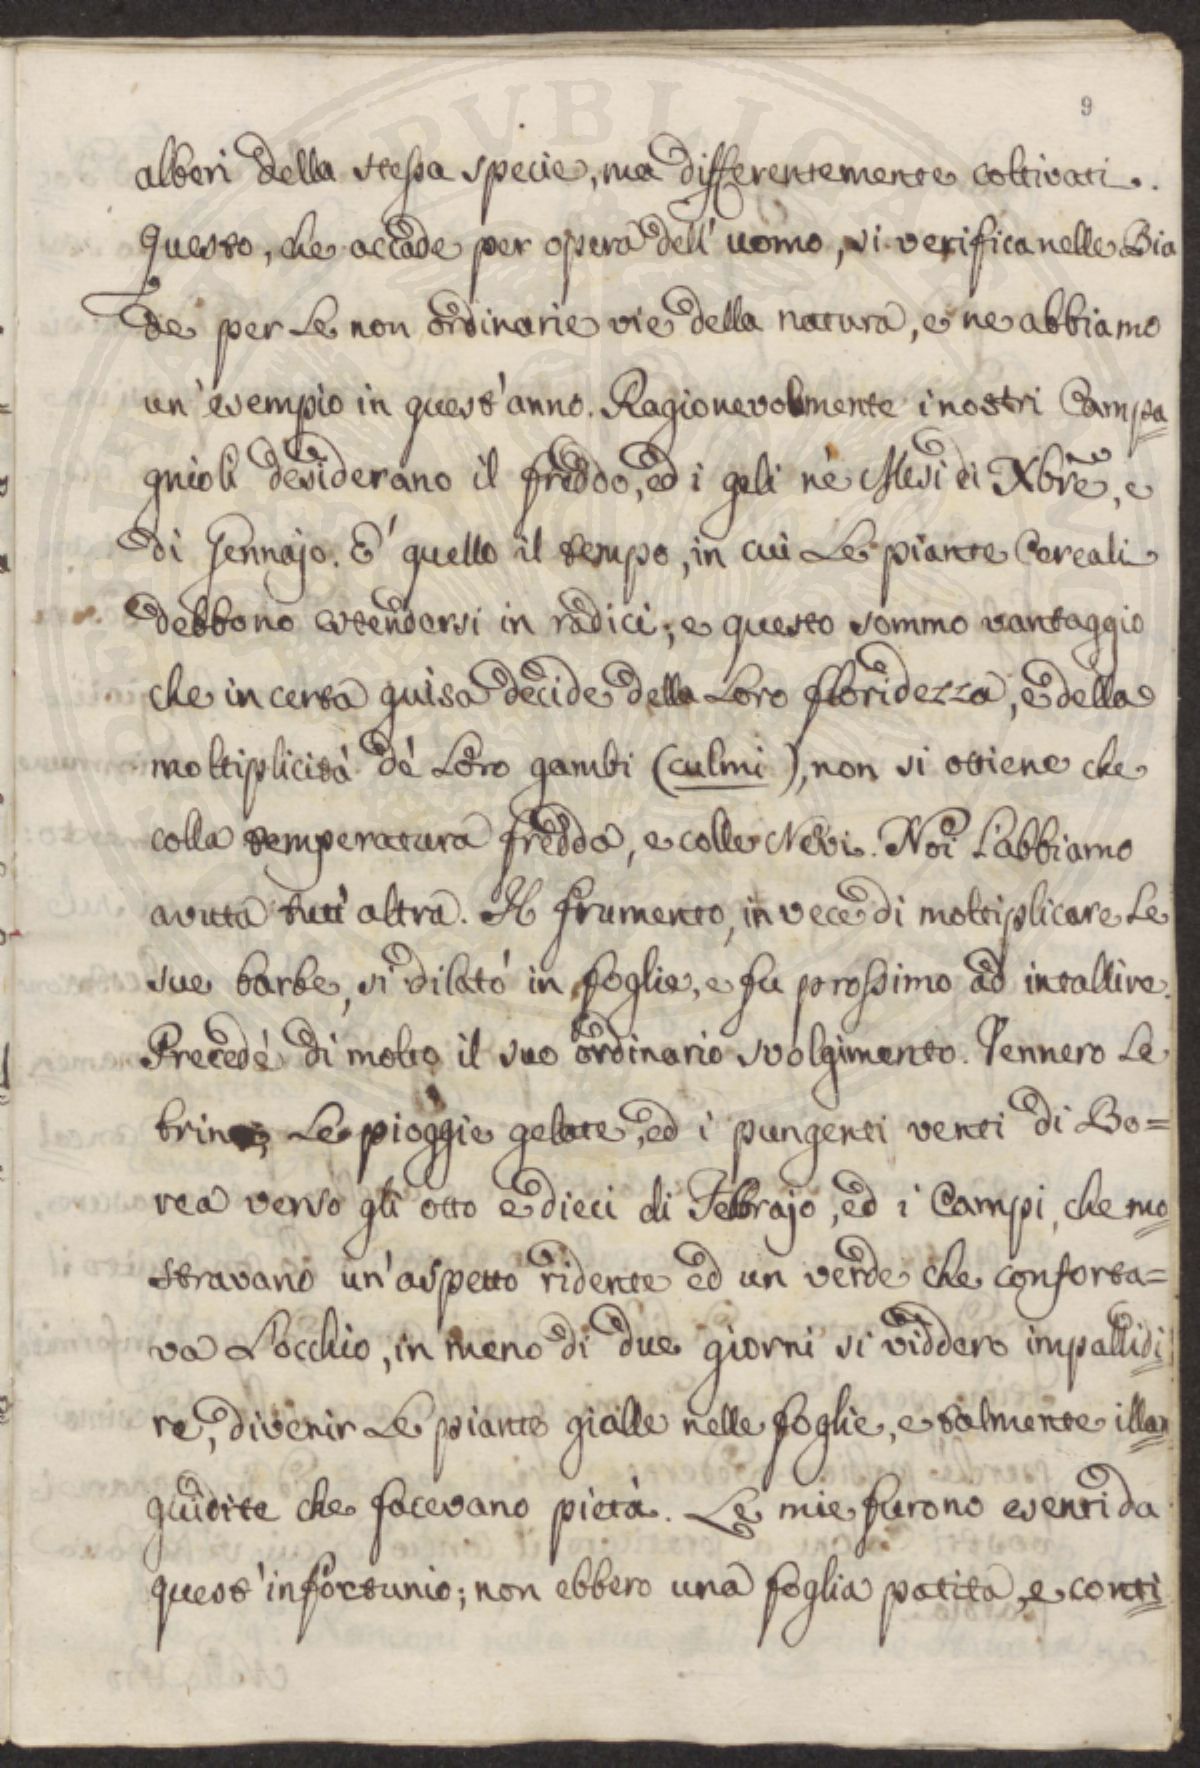 9
alberi della stessa specie, ma differentemente coltivati.
Questo, che accade per opera dell' uomo, si verifica nelle Bia
de per le non ordinarie vie della natura, e ne abbiamo
un' esempio in quest' anno. Ragionevolmente i nostri Campa=
gnioli desiderano il freddo, ed i geli nè Mesi di Xbre, e
di Gennajo. È quello il tempo, in cui Le piante Cereali
debbono estendersi in radici; e questo sommo vantaggio
che in certa guisa decide della Loro floridezza, e della
moltiplicità dè Loro gambi (culmi), non si ottiene che
colla temperatura fredda, e colle Nevi. Noi L'abbiamo
avuta tutt' altra. Il frumento, in vece di moltiplicare Le
sue barbe, si dilatò in foglie, e fu prossimo ad intallire.
Precedè di molto il suo ordinario svolgimento. Vennero Le
brine, Le pioggie gelate, ed i pungenti venti di Bo=
rea verso gli otto e dieci di Febbrajo, ed i Campi, che mo=
stravano un' aspetto ridente ed un verde che conforta=
va L'occhio, in meno di due giorni si viddero impallidi=
re, divenir Le piante gialle nelle foglie, e talmente illan=
guidite che facevano pietà. Le mie furono esenti da
quest' infortunio; non ebbero una foglia patita, e conti=